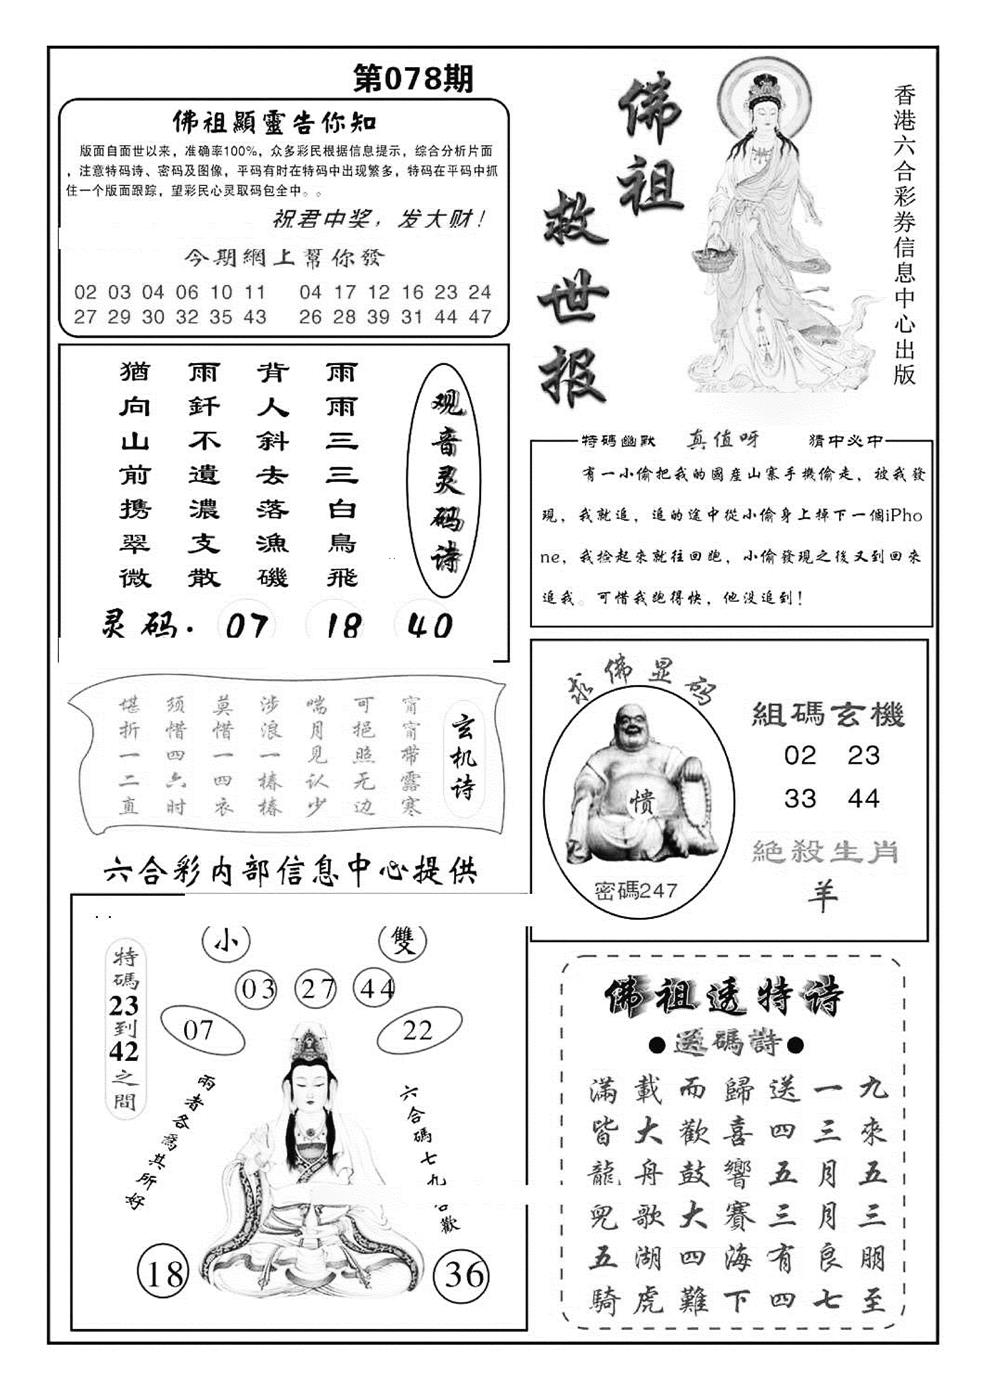 第078期
佛祖顯靈告你知
版面自面世以来，准确率100%，众多彩民根据信息提示，综合分析片面
，注意特码诗、密码及图像，平码有时在特码中出现繁多，特码在平码中抓
住一个版面跟踪，望彩民心灵取码包全中。。
祝君中奖，发大财！
今期網上幫你發
02 03 04 06 10 11 04 17 12 16 23 24
27 29 30 32 35 43 26 28 39 31 44 47
佛祖
救世报
香港六合彩券信息中心出版
观音灵码诗
雨雨三三白鳥飛
背人斜去落漁磯
雨釬不遺濃支散
猶向山前携翠微
灵码. 07 18 40
特碼幽默 真值呀 猜中必中
有一小偷把我的國産山寨手機偷走，被我發
現，我就追，追的途中從小偷身上掉下一個iPho
ne，我撿起來就往回跑，小偷發現之後又到回來
追我。可惜我跑得快，他没追到！
玄机诗
甯甯帶露寒
可挹照无边
喘月见认少
涉浪一椿椿
莫惜一四衣
须惜四六时
堪折一二直
六合彩内部信息中心提供
求佛显码
愦
密碼247
組碼玄機
02 23
33 44
絕殺生肖
羊
小 雙
03 27 44
07 22
特碼23到42之間
兩者各爲其所好
六合碼七九
歡
18 36
佛祖透特诗
●送碼詩●
九來五三朋至
一三月月良七
送四五三有四
歸喜響賽海下
而歡鼓大四難
載大舟歌湖虎
滿皆龍兜五騎